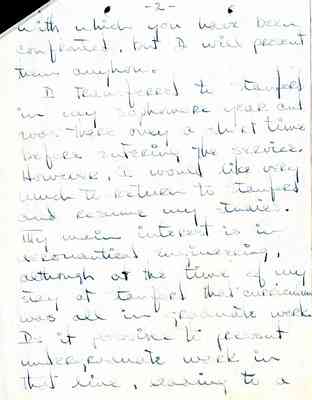 -2-
with which you have been
confronted, but I will present
them anyhow.
I transferred to Stanford
in my sophomore year and
was there only a short time
before entering the service.
However, I would like very
much to return to Stanford
and resume my studies.
My main interest is in
aeronautical engineering,
although at the time of my
stay at Stanford that curriculum
was all in graduate work.
Is it possible to present
undergraduate work in
that line, leading to a